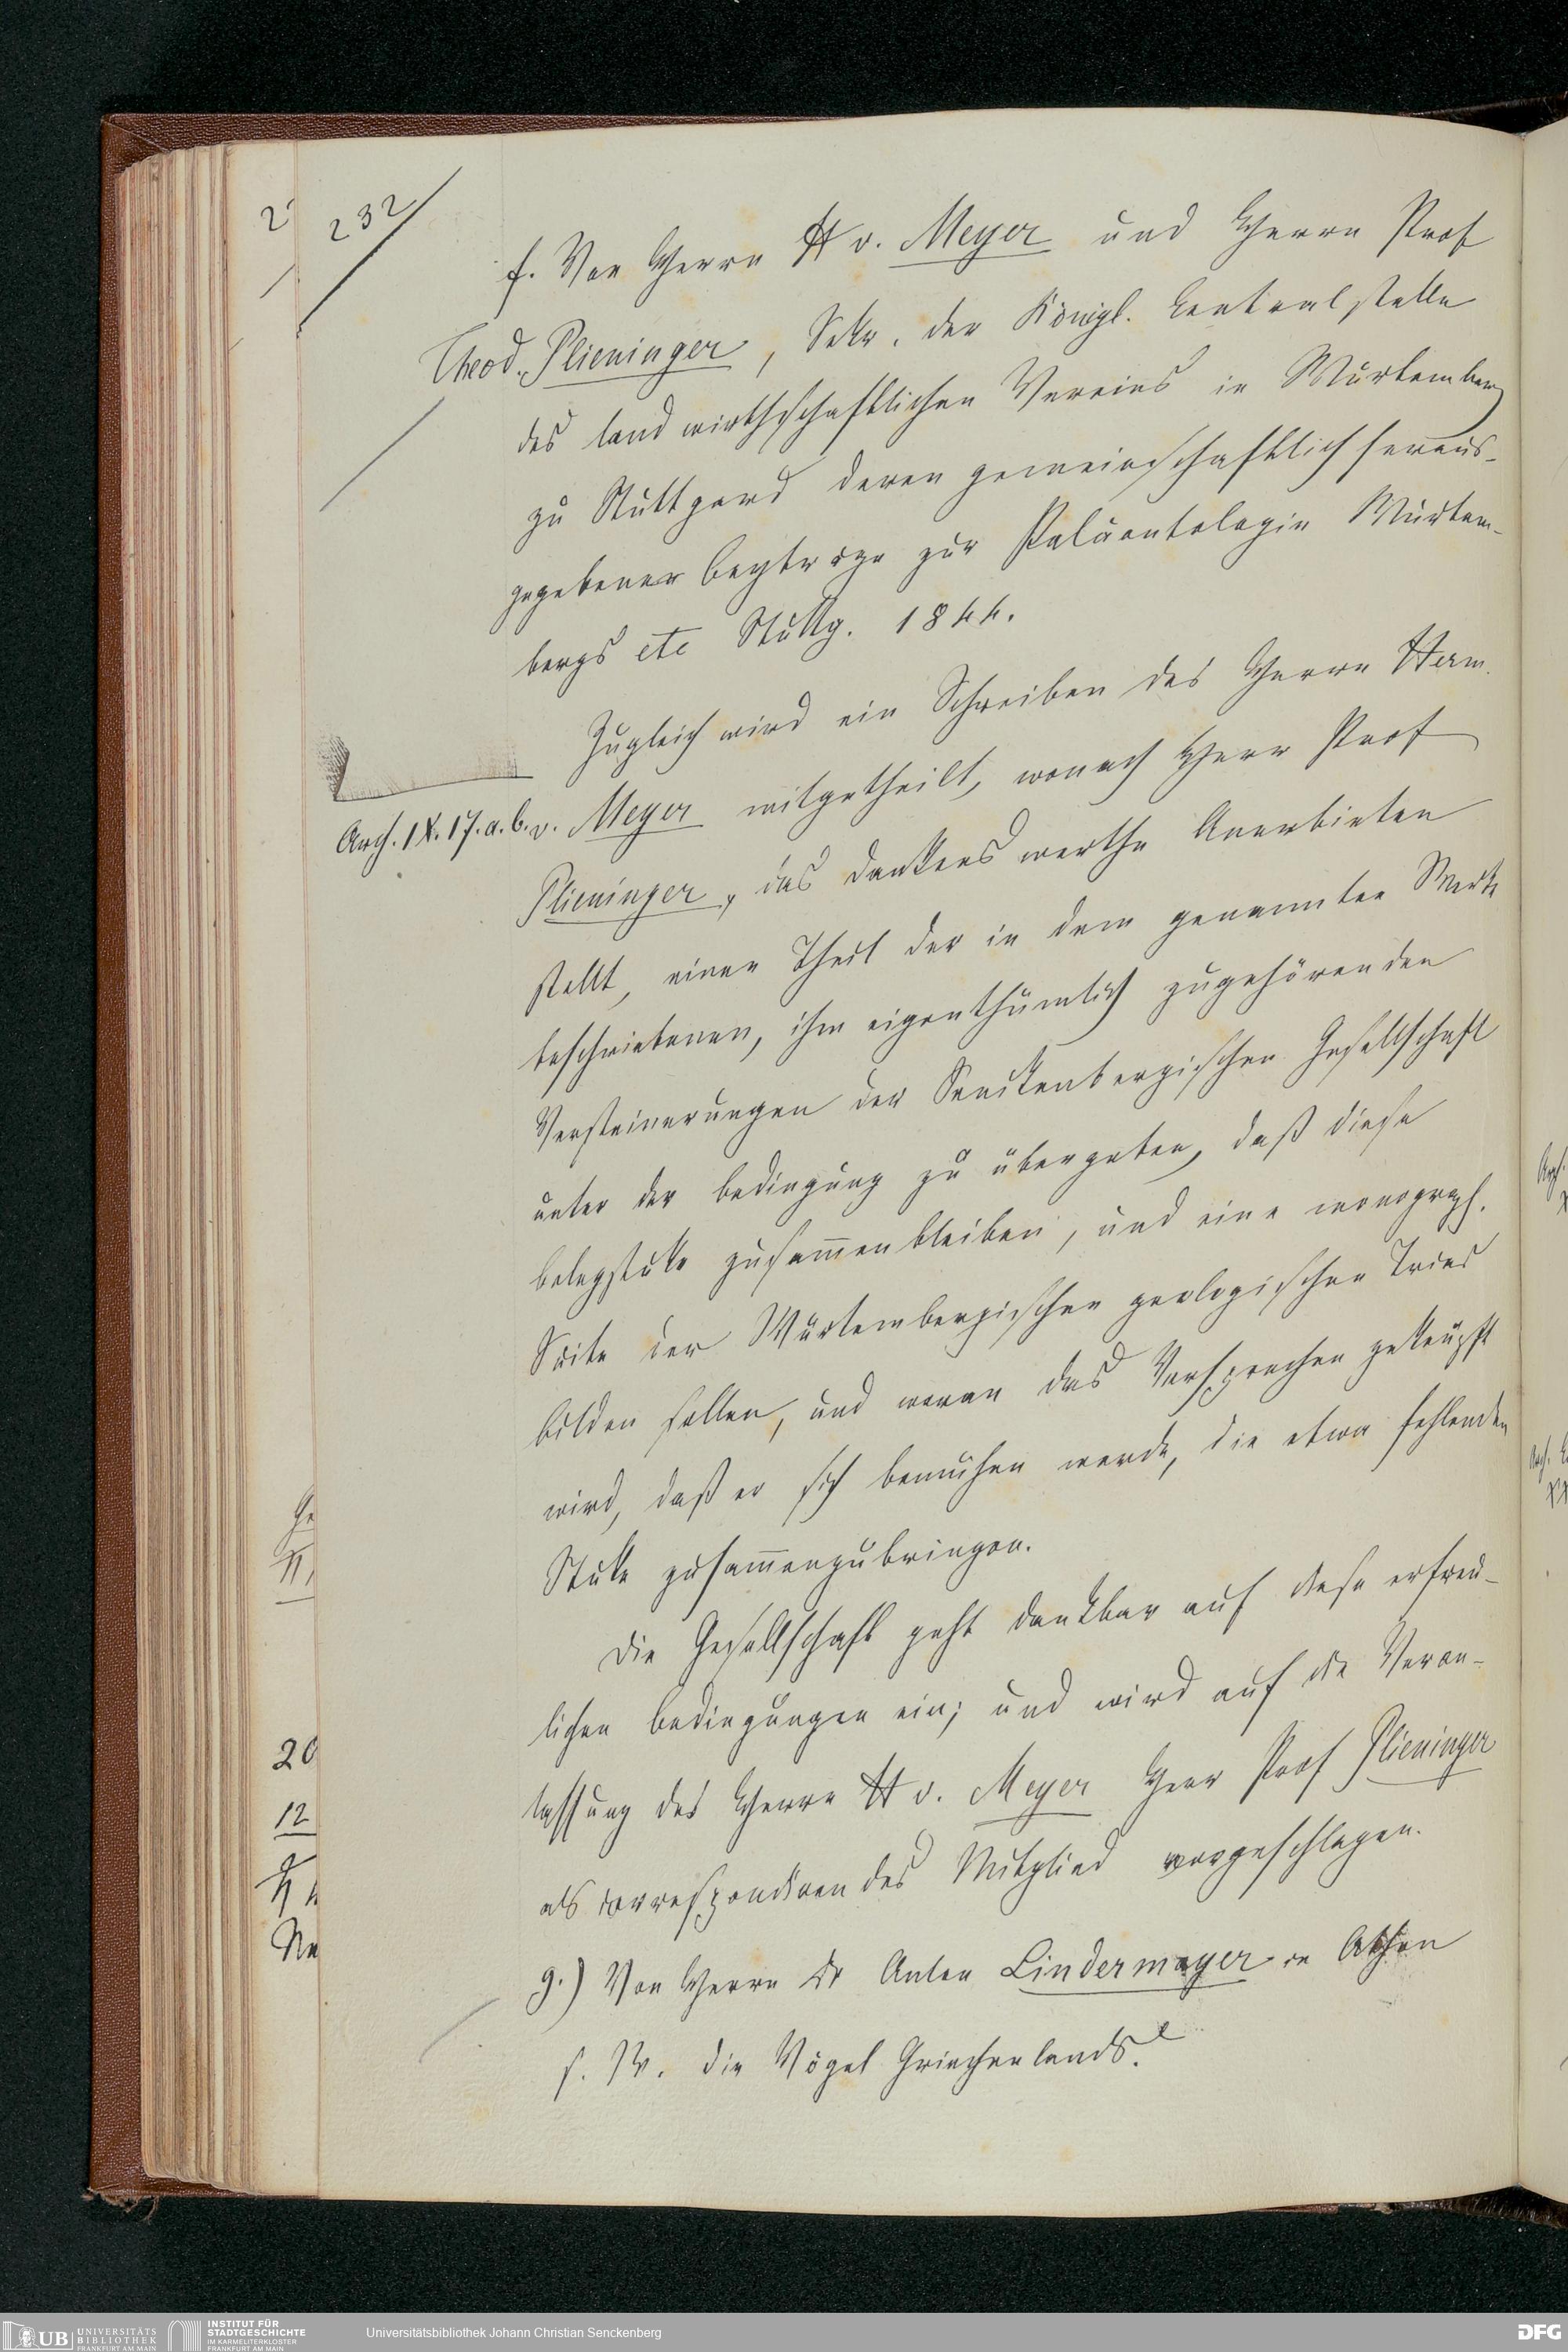 232
f. Von Herrn H v. Meyer und Herrn Prof
Theod. Plieninger, Sekr. der Königl. Centralstelle
des landwirthschaftlichen Vereins in Würtemberg
zu Stuttgard deren gemeinschaftlich heraus-
gegebener Beyträge zur Paläontologie Würtem-
bergs etc Stuttg. 1844.
Zugleich wird ein Schreiben des Herrn Herm.
Arch. IX. 17. a. b. v. Meyer mitgetheilt, wonach Herr Prof
Plieninger, das dankenswerthe Anerbieten
stellt, einen Theil der in dem genannten Werke
beschriebenen, ihm eigenthümlich zugehörenden
Versteinerungen der Senckenbergischen Gesellschaft
unter der Bedingung zu übergeben, daß diese
Belegstüke zusam̄enbleiben, und eine monograph.
Suite der Würtembergischen geologischen Trias
bilden sollen, und woran das Versprechen geknüpft
wird, daß er sich bemühen werde, die etwa fehlenden
Stüke zusam̄enzubringen.
Die Gesellschaft geht dankbar auf diese erfreu-
lichen Bedingungen ein; und wird auf die Veran-
lassung des Herrn H v. Meyer Herr Prof Plieninger
als correspondirendes Mitglied vorgeschlagen.
g.) Von Herrn Dr Anton Lindermayer in Athen
s. W. die Vögel Griechenlands.
20
12
UB UNIVERSITÄTS
BIBLIOTHEK
FRANKFURT AM MAIN
INSTITUT FÜR
STADTGESCHICHTE
IM KARMELITERKLOSTER
FRANKFURT AM MAIN
Universitätsbibliothek Johann Christian Senckenberg
DFG